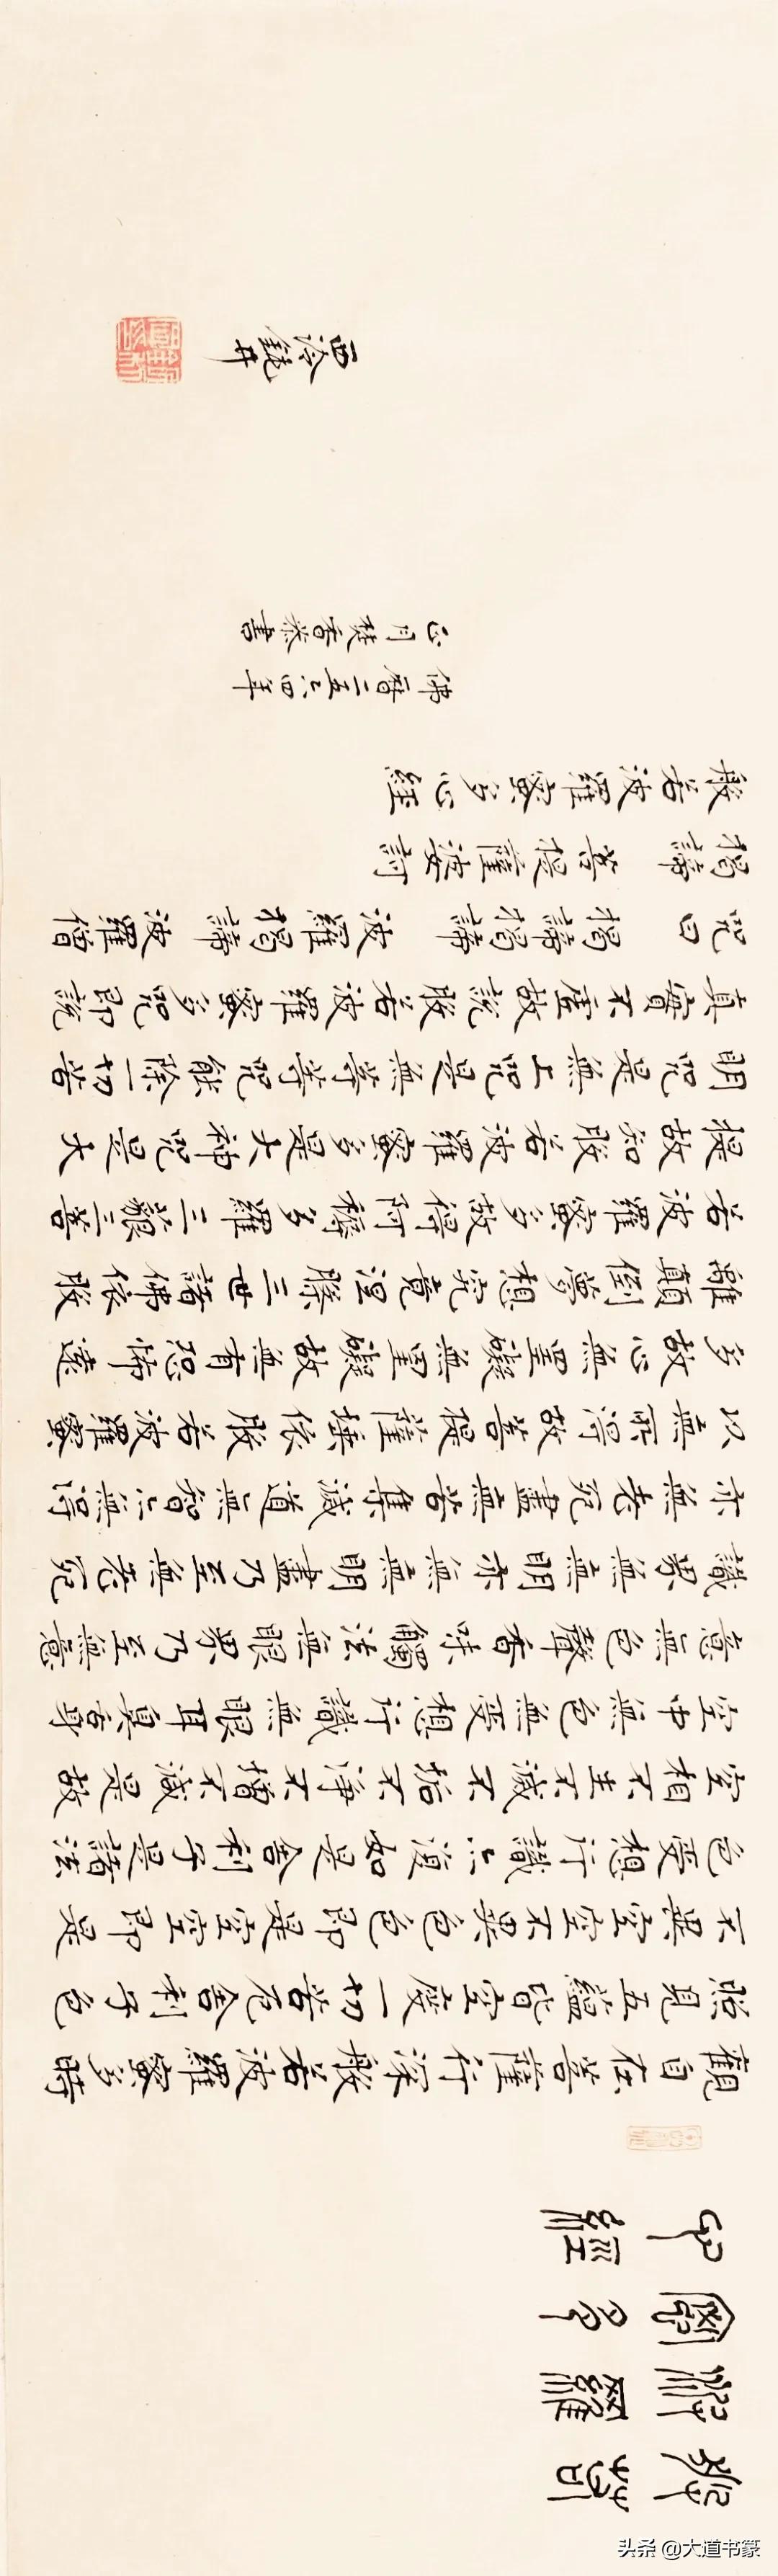 般若
波羅
蜜多
心經
觀自在菩薩行深般若波羅蜜多時
照見五蘊皆空度一切苦厄舍利子色
不異空空不異色色即是空空即是
色受想行識亦復如是舍利子是諸法
空相不生不滅不垢不淨不增不減是故
空中無色無受想行識無眼耳鼻舌身
意無色聲香味觸法無眼界乃至無意
識界無無明亦無無明盡乃至無老死
亦無老死盡無苦集滅道無智亦無得
以無所得故菩提薩埵依般若波羅蜜
多故心無罣礙無罣礙故無有恐怖遠
離顛倒夢想究竟涅槃三世諸佛依般
若波羅蜜多故得阿耨多羅三藐三菩
提故知般若波羅蜜多是大神咒是大
明咒是無上咒是無等等咒能除一切苦
真實不虛故說般若波羅蜜多咒即說
咒曰 揭諦揭諦 波羅揭諦 波羅僧
揭諦 菩提薩婆訶
般若波羅蜜多心経
佛曆二五六四年
正月焚香恭書
西泠井
头条 @大道书篆